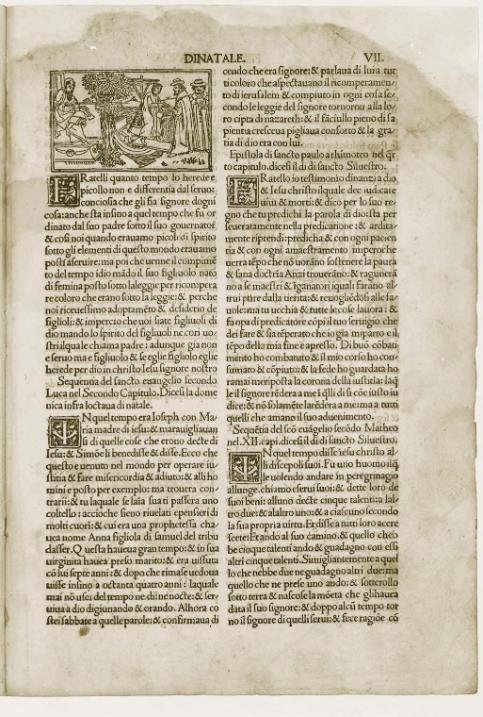 DINATALE.
VII.
FRatelli quanto tempo lo herede e
picollo non e differentia dal seruo:
conciosia che gli sia signore dogni
cosa: anche sta insino a quel tempo che fu or
dinato dal suo padre sotto il suo gouernator
& cosi noi quando erauamo picoli di spirito
sotto gli elementi di questo mondo erauamo
posti a seruire: ma poi che uenne il compimē
to del tempo idio mādo il suo figliuolo nato
di femina posto sotto la legge: per ricompera
re coloro che erano sotto la legge: & perche
noi riceuessimo adoptamēto & desiderio de
figlioli: & impercio che uoi siate figliuoli di
dio mando lo spirito del figliuol ne cori uo
stri il quale chiama padre: adunque gia non
e seruo ma e figliuolo & se eglie figliolo eglie
herede per dio in christo Iesu signore nostro
Sequentia del sancto euangelio secondo
Luca nel Secondo Capitulo. Dicesi la dome
nica infra loctaua di natale.
IN quel tempo era Ioseph con Ma
ria madre di iesu: & marauigliauan
si di quelle cose che erono decte di
Iesu: & Simōe li benedisse & disse. Ecco che
questo e uenuto nel mondo per operare iu
stitia & fare misericordia & adiuto: & alli ho
mini e posto per exemplo: ma trouera con
trarii: & tu la quale se la sia si passera uno
coltello: accioche sieno riuelati e pensieri di
molti cuori: & cui era una prophetessa cha
uea nome Anna figliola di samuel del tribu
dasser. Questa haueua gran tempo: & in sua
uirginita haueua preso marito: & era uissuta
cō lui septe anni: & dopo che rimase uedoua
uisse insino a octanta quatro anni: laquale
mai nō usci del tempo ne di: ne nocte: & ser
uiua a dio digiunando & orando. Alhora co
stei sabbate a quelle parole: & confirmaua di
ceudo che era signore: & parlaua di lui a tut
ti coloro che aspectauano il ricomperamen
to di ierusalem & compiuto in ogni cosa se
condo le leggie del signore tornorō alla lo
ro cipta di nazareth: & il fāciullo pieno di sa
pientia cresceua pigliaua conforto & la gra
tia di dio era con lui.
Epistola di sancto paulo a thimoteo nel q̄r
to capitulo. dicesi il di di sancto Siluestro.
FRatello io testimonio dinanzi a dio
& Iesu christo il quale dee iudicare
uiui & morti: & dico per lo suo re
gno che tu predichi la parola di dio: sta per
seueratamente nella predicatione: & ardita
mente riprendi: predicha & con ogni pacien
tia & con ogni amaestramento imperoche
uerra tēpo che nō uorāno sostenere la paura
& sana doctrīa Anzi trouerāno: & raguneră
no a se maestri & īganatori iquali farāno al
trui ptire dalla uerita: & reuogliēdosi alle fa
uole: ma tu ueghia & tutte le cose lauora: &
fa opa di predicatore cōpi il tuo seruigio che
dei fare & sia tēperato che io gia imparto e il
tēpo della mia fine e apresso. Di buō cōbati
mento ho combatuto & il mio corso ho con
sumato & cōpiuto: & la fede ho guardata ho
ramai me riposta la corona della iustitia: laq̄
le il signore rēdera a me ī q̄lli di si cōe iusto iu
dice: & nō solamēte la rēdera a me: ma a tutti
quelli che amano il suo aduenimento.
Sequētia del scō euāgelio secōdo Matheo
nel. XII. capi. dicesi il di di sancto Siluestro.
IN quel tempo disse iesu christo al
li discepoli suoi. Fu uno huomo il q̄
le uolendo andare in peregrinagio
allunge. chiamo e serui suoi: & dette loro de
suoi beni: alluno decte cinque talenti: a lal
tro due: & alaltro uno: & a ciascuno secondo
la sua propria uirtu. Et disse a tutti loro accre
scete: Et ando al suo camino. & quello che b
be cinque talenti ando & guadagno con essi
altri cinque talenti. Simigliantemente a quel
lo che nebbe due ne guadagno altri due: ma
quello che ne prese uno ando: & sotterollo
sotto terra & nascose la mōeta che gli haueua
data il suo signore: & doppo alcū tempo tor
no il signore di quelli serui: & fece ragiōe cō